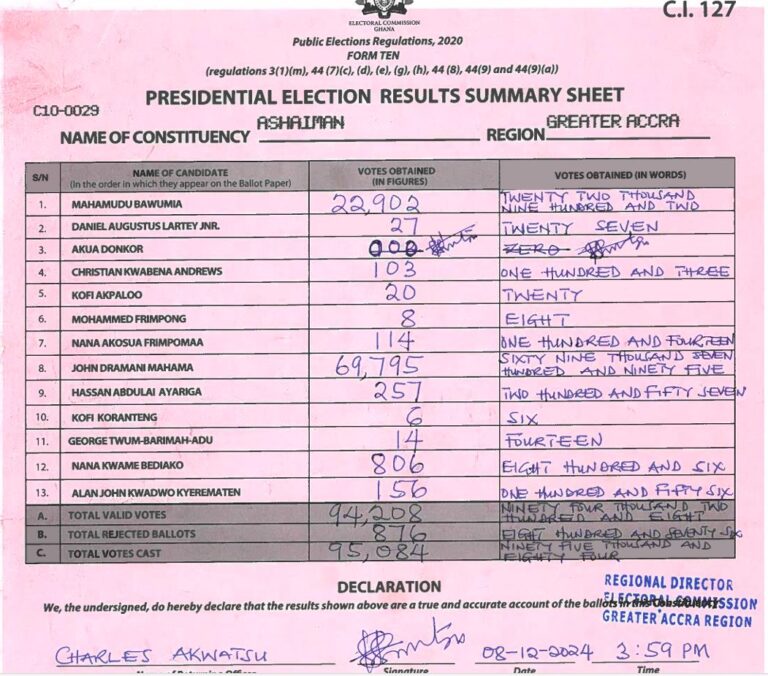 C.I. 127
ELECTORAL COMMISSION
GHANA
Public Elections Regulations, 2020
FORM TEN
(regulations 3(1)(m), 44 (7)(c), (d), (e), (g), (h), 44 (8), 44(9) and 44(9)(a))
PRESIDENTIAL ELECTION RESULTS SUMMARY SHEET
C10-0029
NAME OF CONSTITUENCY ASHAIMAN REGION GREATER ACCRA
S/N NAME OF CANDIDATE (In the order in which they appear on the Ballot Paper) VOTES OBTAINED (IN FIGURES) VOTES OBTAINED (IN WORDS)
1. MAHAMUDU BAWUMIA 22,902 TWENTY TWO THOUSAND NINE HUNDRED AND TWO
2. DANIEL AUGUSTUS LARTEY JNR. 27 TWENTY SEVEN
3. AKUA DONKOR 000 ZERO
4. CHRISTIAN KWABENA ANDREWS 103 ONE HUNDRED AND THREE
5. KOFI AKPALOO 20 TWENTY
6. MOHAMMED FRIMPONG 8 EIGHT
7. NANA AKOSUA FRIMPOMAA 114 ONE HUNDRED AND FOURTEEN
8. JOHN DRAMANI MAHAMA 69,795 SIXTY NINE THOUSAND SEVEN HUNDRED AND NINETY FIVE
9. HASSAN ABDULAI AYARIGA 257 TWO HUNDRED AND FIFTY SEVEN
10. KOFI KORANTENG 6 SIX
11. GEORGE TWUM-BARIMAH-ADU 14 FOURTEEN
12. NANA KWAME BEDIAKO 806 EIGHT HUNDRED AND SIX
13. ALAN JOHN KWADWO KYEREMATEN 156 ONE HUNDRED AND FIFTY SIX
A. TOTAL VALID VOTES 94,208 NINETY FOUR THOUSAND TWO HUNDRED AND EIGHT
B. TOTAL REJECTED BALLOTS 876 EIGHT HUNDRED AND SEVENTY SIX
C. TOTAL VOTES CAST 95,084 NINETY FIVE THOUSAND AND EIGHTY FOUR
DECLARATION
We, the undersigned, do hereby declare that the results shown above are a true and accurate account of the ballots in this Constituency.
REGIONAL DIRECTOR
ELECTORAL COMMISSION
GREATER ACCRA REGION
CHARLES AKWATSU 08-12-2024 3:59 PM
Name of Returning Officer Signature Date Time